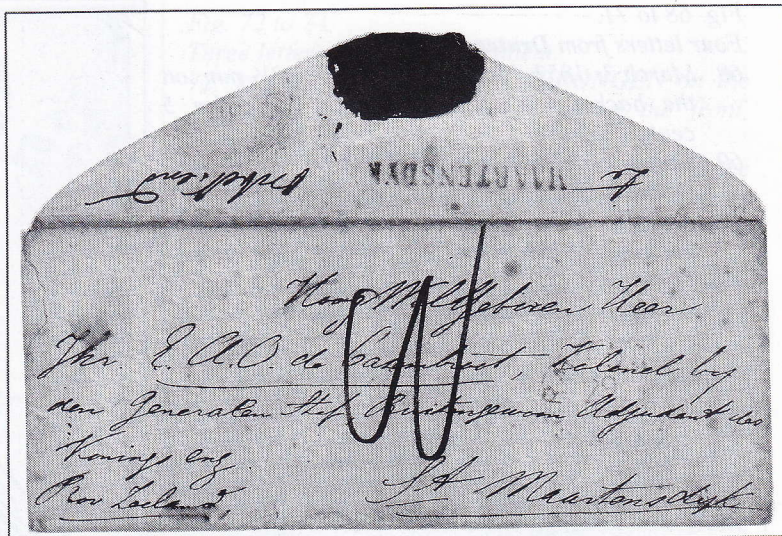 MAARTENSDYK
Onbekend
Hoog WelGeboren Heer
Jhr. E. A. O. de Casembroot, Kolonel by
den Generalen Staf Buitengewoon Adjudant des
Konings eng.
Prov Zeeland,
St Maartensdijk